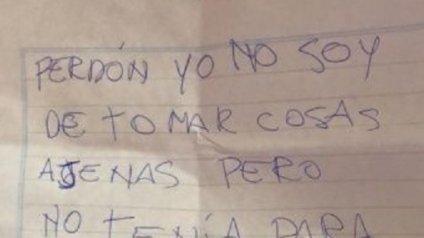 PERDÓN YO NO SOY
DE TOMAR COSAS
AJENAS PERO
NO TENÍA PARA